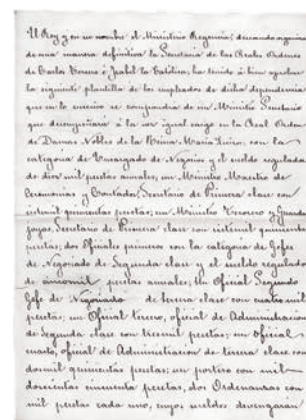 El Rey y en su nombre el Ministerio Regencia; deseando organizar
de una manera definitiva la Secretaría de las Reales Ordenes
de Carlos Tercero é Isabel la Católica, ha tenido á bien aprobar
la siguiente plantilla de los empleados de dicha dependencia
que en lo sucesivo se compondrá de un Ministro Secretario
que desempeñará á la vez igual cargo en la Real Orden
de Damas Nobles de la Reina María Luisa, con la
categoría de Encargado de Negocios y el sueldo regulador
de diez mil pesetas anuales; un Ministro Maestro de
Ceremonias y Contador, Secretario de Primera clase con
siete mil quinientas pesetas; un Ministro Tesorero y Guarda
joyas, Secretario de Primera clase con siete mil quinientas
pesetas; dos Oficiales primeros con la categoría de Jefes
de Negociado de Segunda clase y el sueldo regulador
de cinco mil pesetas anuales; Un Oficial Segundo
Jefe de Negociado de tercera clase con cuatro mil
pesetas; un Oficial tercero, oficial de Administracion
de Segunda clase con tres mil pesetas; un oficial
cuarto, oficial de Administracion de tercera clase con
dos mil quinientas pesetas; un portero con mil
doscientas cincuenta pesetas, dos Ordenanzas con
mil pesetas cada uno, cuyos sueldos devengarán